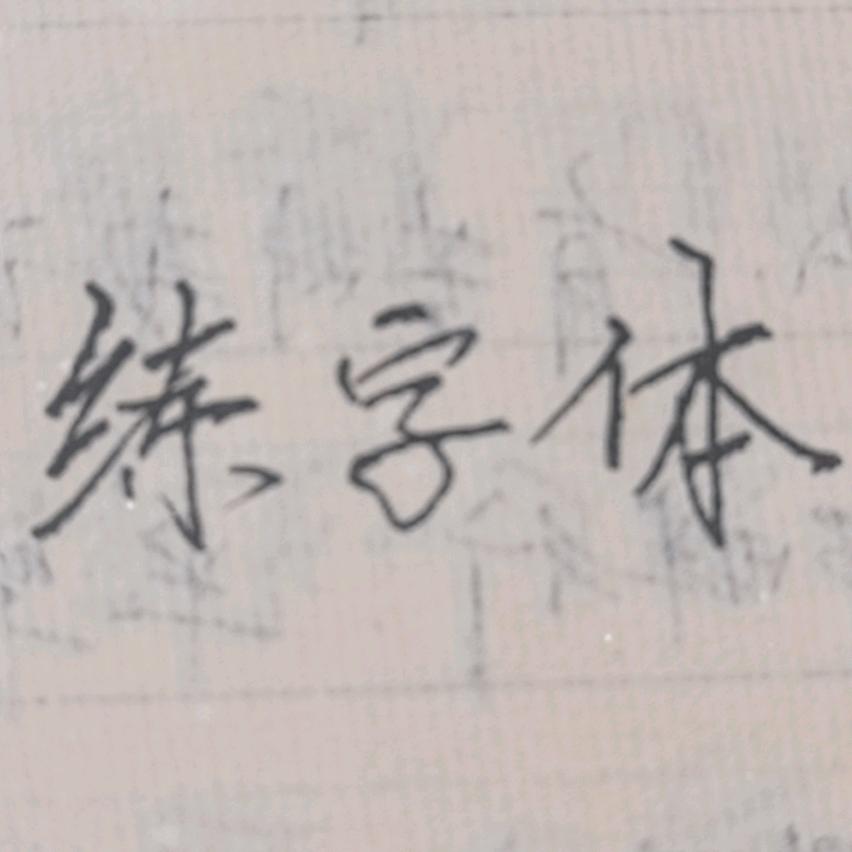 练字体